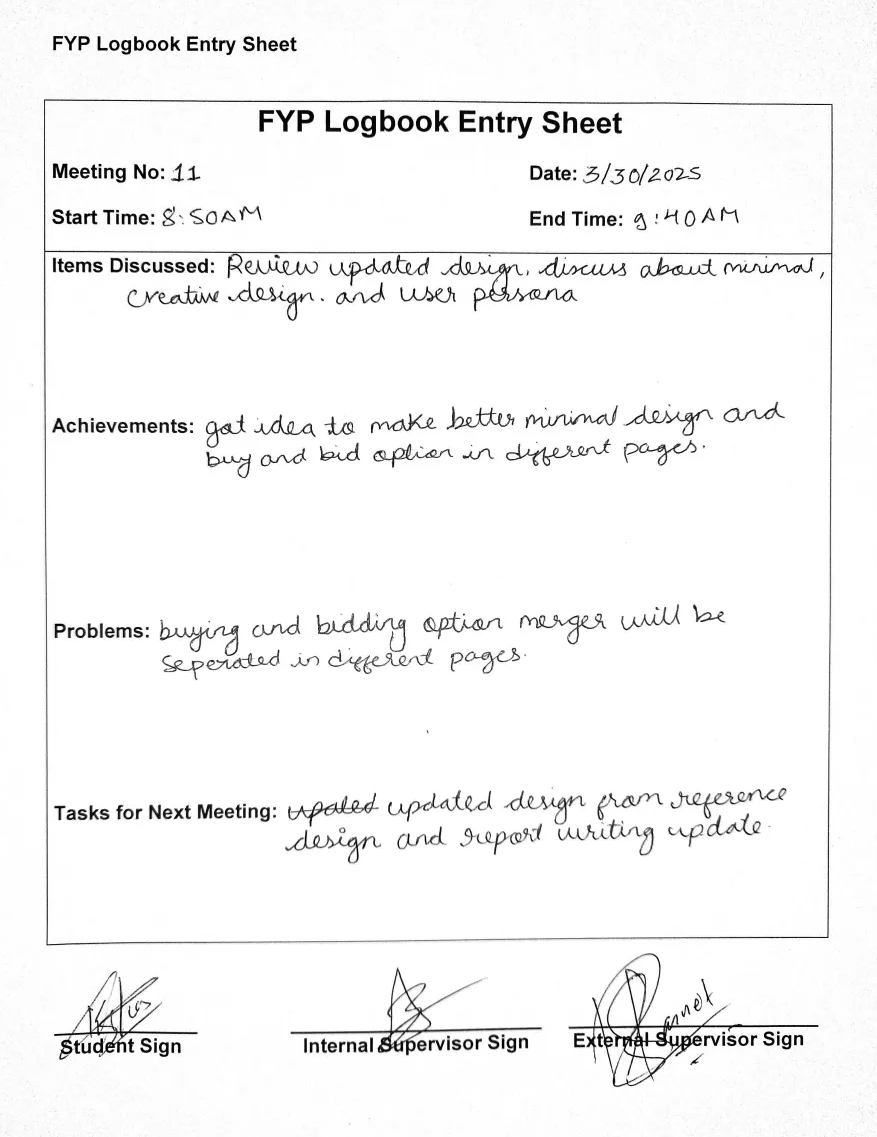 FYP Logbook Entry Sheet
FYP Logbook Entry Sheet
Meeting No: 11
Date: 3/30/2025
Start Time: 8:50AM
End Time: 9:40AM
Items Discussed: Review updated design, discuss about minimal,
creative design. and user persona
Achievements: got idea to make better minimal design and
buy and bid option in different pages.
Problems: buying and bidding option merger will be
seperated in different pages.
Tasks for Next Meeting: upated updated design from reference
design and report writing update.
Student Sign
Internal Supervisor Sign
External Supervisor Sign